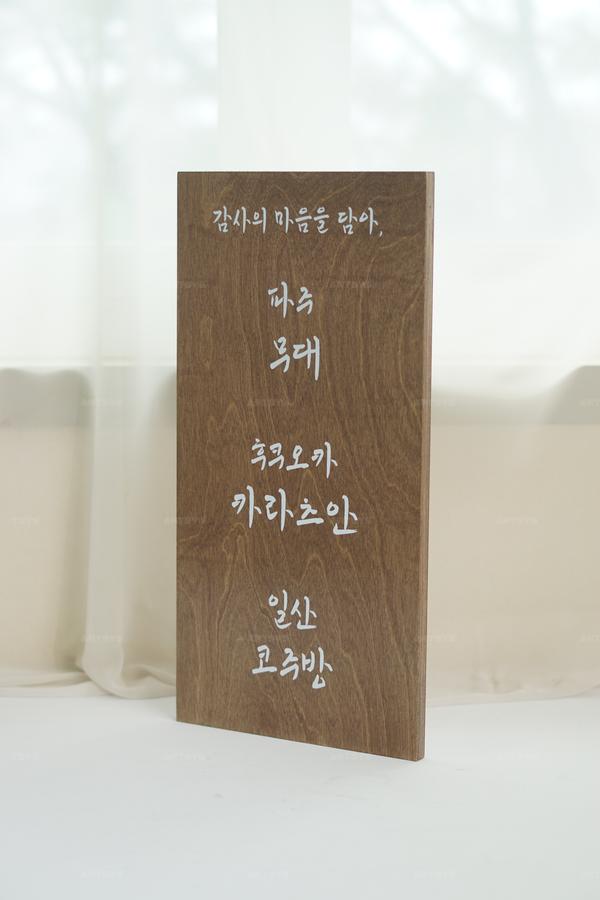 감사의 마음을 담아,
파주
무대
후쿠오카
카라츠안
일산
코주방